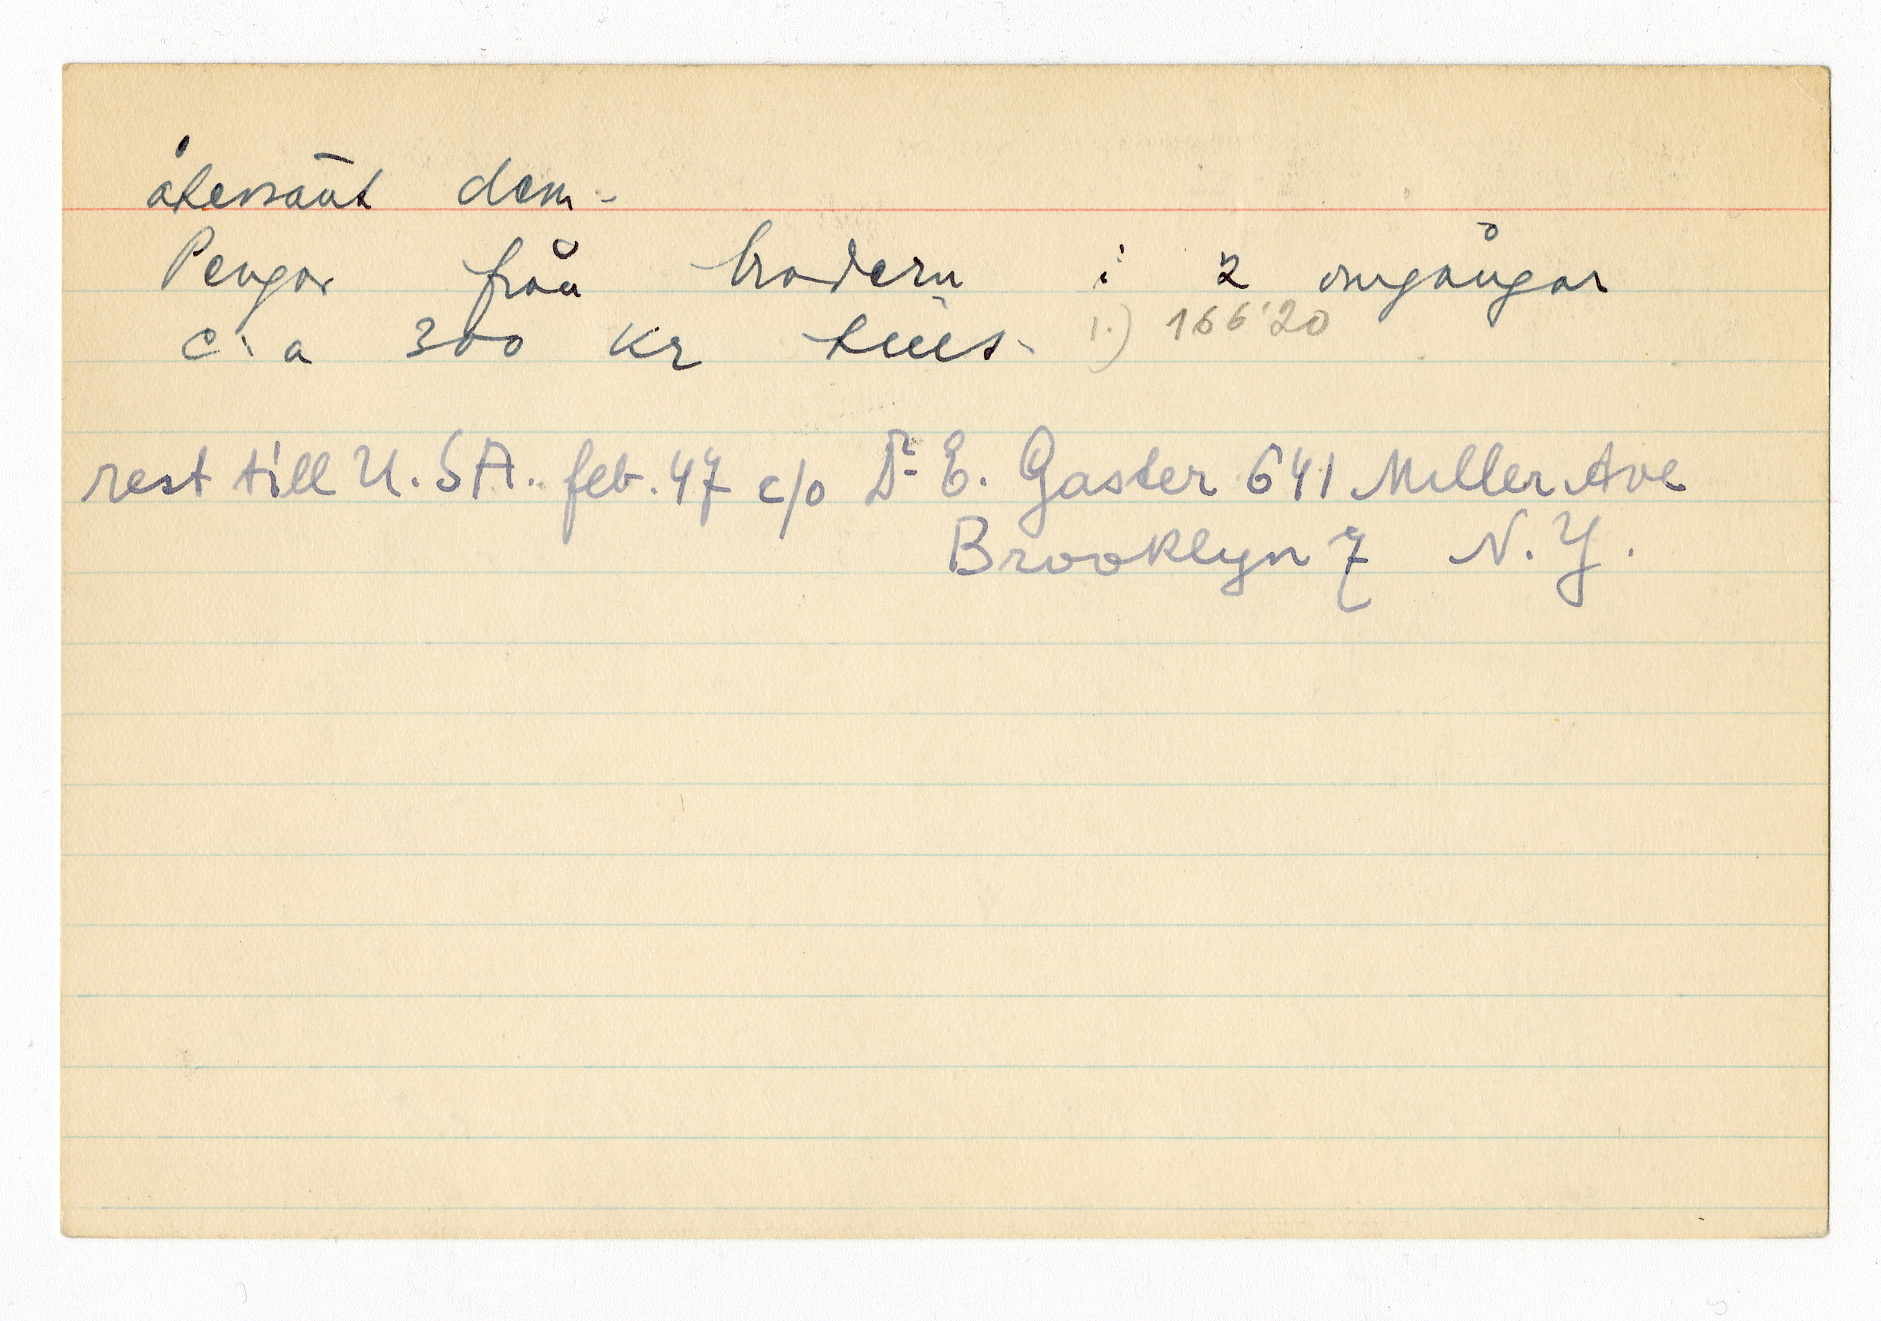 återsänt dem.
Pengar från brodern i 2 omgångar
c:a 300 kr tills. 1.) 166'20
rest till U.S.A. feb. 47 c/o Dr E. Gaster 641 Miller Ave
Brooklyn 7 N.Y.